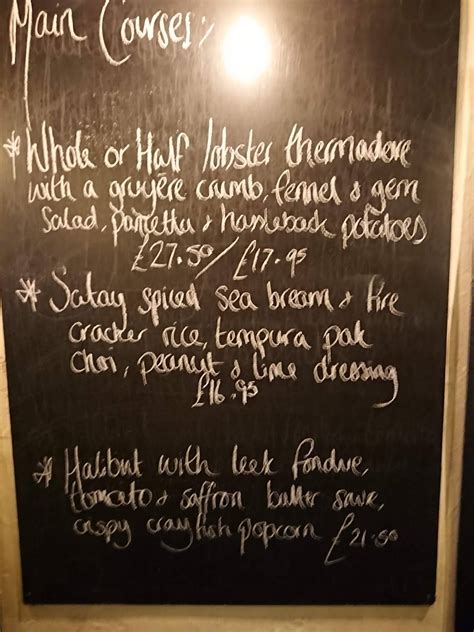 Main Courses:
* Whole or Half lobster thermadore
with a gruyère crumb, fennel & gem
Salad, pancetta & hassleback potatoes
£27.50 / £17.95
* Satay spiced sea bream & fire
cracker rice, tempura pak
choi, peanut & lime dressing
£16.95
* Halibut with leek fondue,
tomato & saffron butter sauce,
crispy crayfish popcorn £21.50